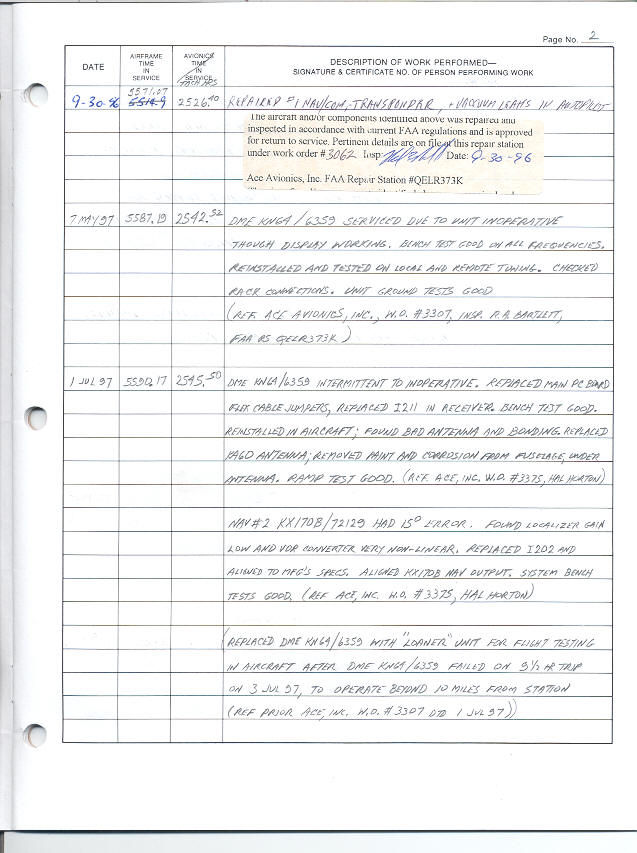 Page No. 2
DATE
AIRFRAME TIME IN SERVICE
AVIONICS TIME IN SERVICE
TACH HRS
DESCRIPTION OF WORK PERFORMED—
SIGNATURE & CERTIFICATE NO. OF PERSON PERFORMING WORK
5571.07
9-30-96 2526.40 REPAIRED #1 NAV/COM, TRANSPONDER, + VACUUM LEAKS IN AUTOPILOT
The aircraft and/or components identified above was repaired and
inspected in accordance with current FAA regulations and is approved
for return to service. Pertinent details are on file at this repair station
under work order #3062 Insp Date: 9-30-96
Ace Avionics, Inc. FAA Repair Station #QELR373K
7 MAY 97 5587.19 2542.52 DME KN64/6359 SERVICED DUE TO UNIT INOPERATIVE
THOUGH DISPLAY WORKING. BENCH TEST GOOD ON ALL FREQUENCIES.
REINSTALLED AND TESTED ON LOCAL AND REMOTE TUNING. CHECKED
RACK CONNECTIONS. UNIT GROUND TESTS GOOD
(REF. ACE AVIONICS, INC., W.O. #3307, INSP. R.A. BARTLETT,
FAA RS QELR373K)
1 JUL 97 5590.17 2545.50 DME KN64/6359 INTERMITTENT TO INOPERATIVE. REPLACED MAIN PC BOARD
FLEX CABLE JUMPERS, REPLACED I211 IN RECEIVER. BENCH TEST GOOD.
REINSTALLED IN AIRCRAFT; FOUND BAD ANTENNA AND BONDING. REPLACED
KA60 ANTENNA; REMOVED PAINT AND CORROSION FROM FUSELAGE, UNDER
ANTENNA. RAMP TEST GOOD. (REF. ACE, INC. W.O. #3375, HAL HORTON)
NAV #2 KX170B/72129 HAD 15° ERROR. FOUND LOCALIZER GAIN
LOW AND VOR CONVERTER VERY NON-LINEAR. REPLACED I202 AND
ALIGNED TO MFG'S SPECS. ALIGNED KX170B NAV OUTPUT. SYSTEM BENCH
TESTS GOOD. (REF ACE, INC. W.O. #3375, HAL HORTON)
(REPLACED DME KN64/6359 WITH "LOANER" UNIT FOR FLIGHT TESTING
IN AIRCRAFT AFTER DME KN64/6359 FAILED ON 9½ HR TRIP
ON 3 JUL 97, TO OPERATE BEYOND 10 MILES FROM STATION
(REF PRIOR ACE, INC. W.O. #3307 DTD 1 JUL 97))